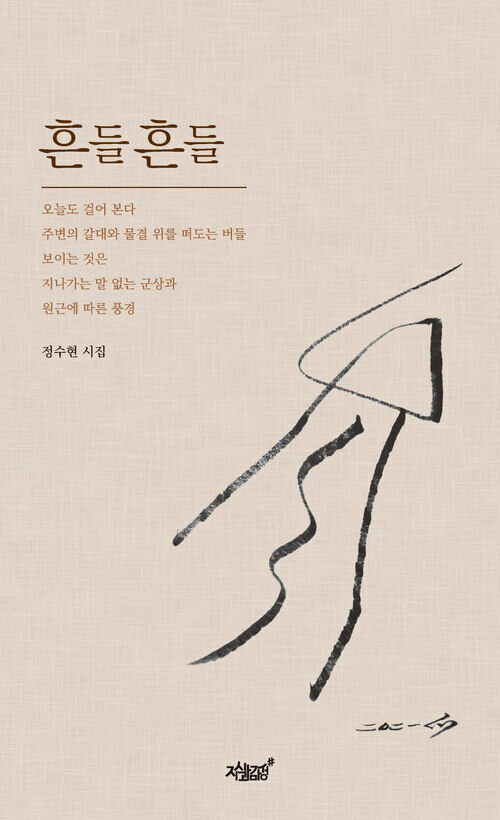 흔들흔들
오늘도 걸어 본다
주변의 갈대와 물결 위를 떠도는 버들
보이는 것은
지나가는 말 없는 군상과
원근에 따른 풍경
정수현 시집
지식과감정#